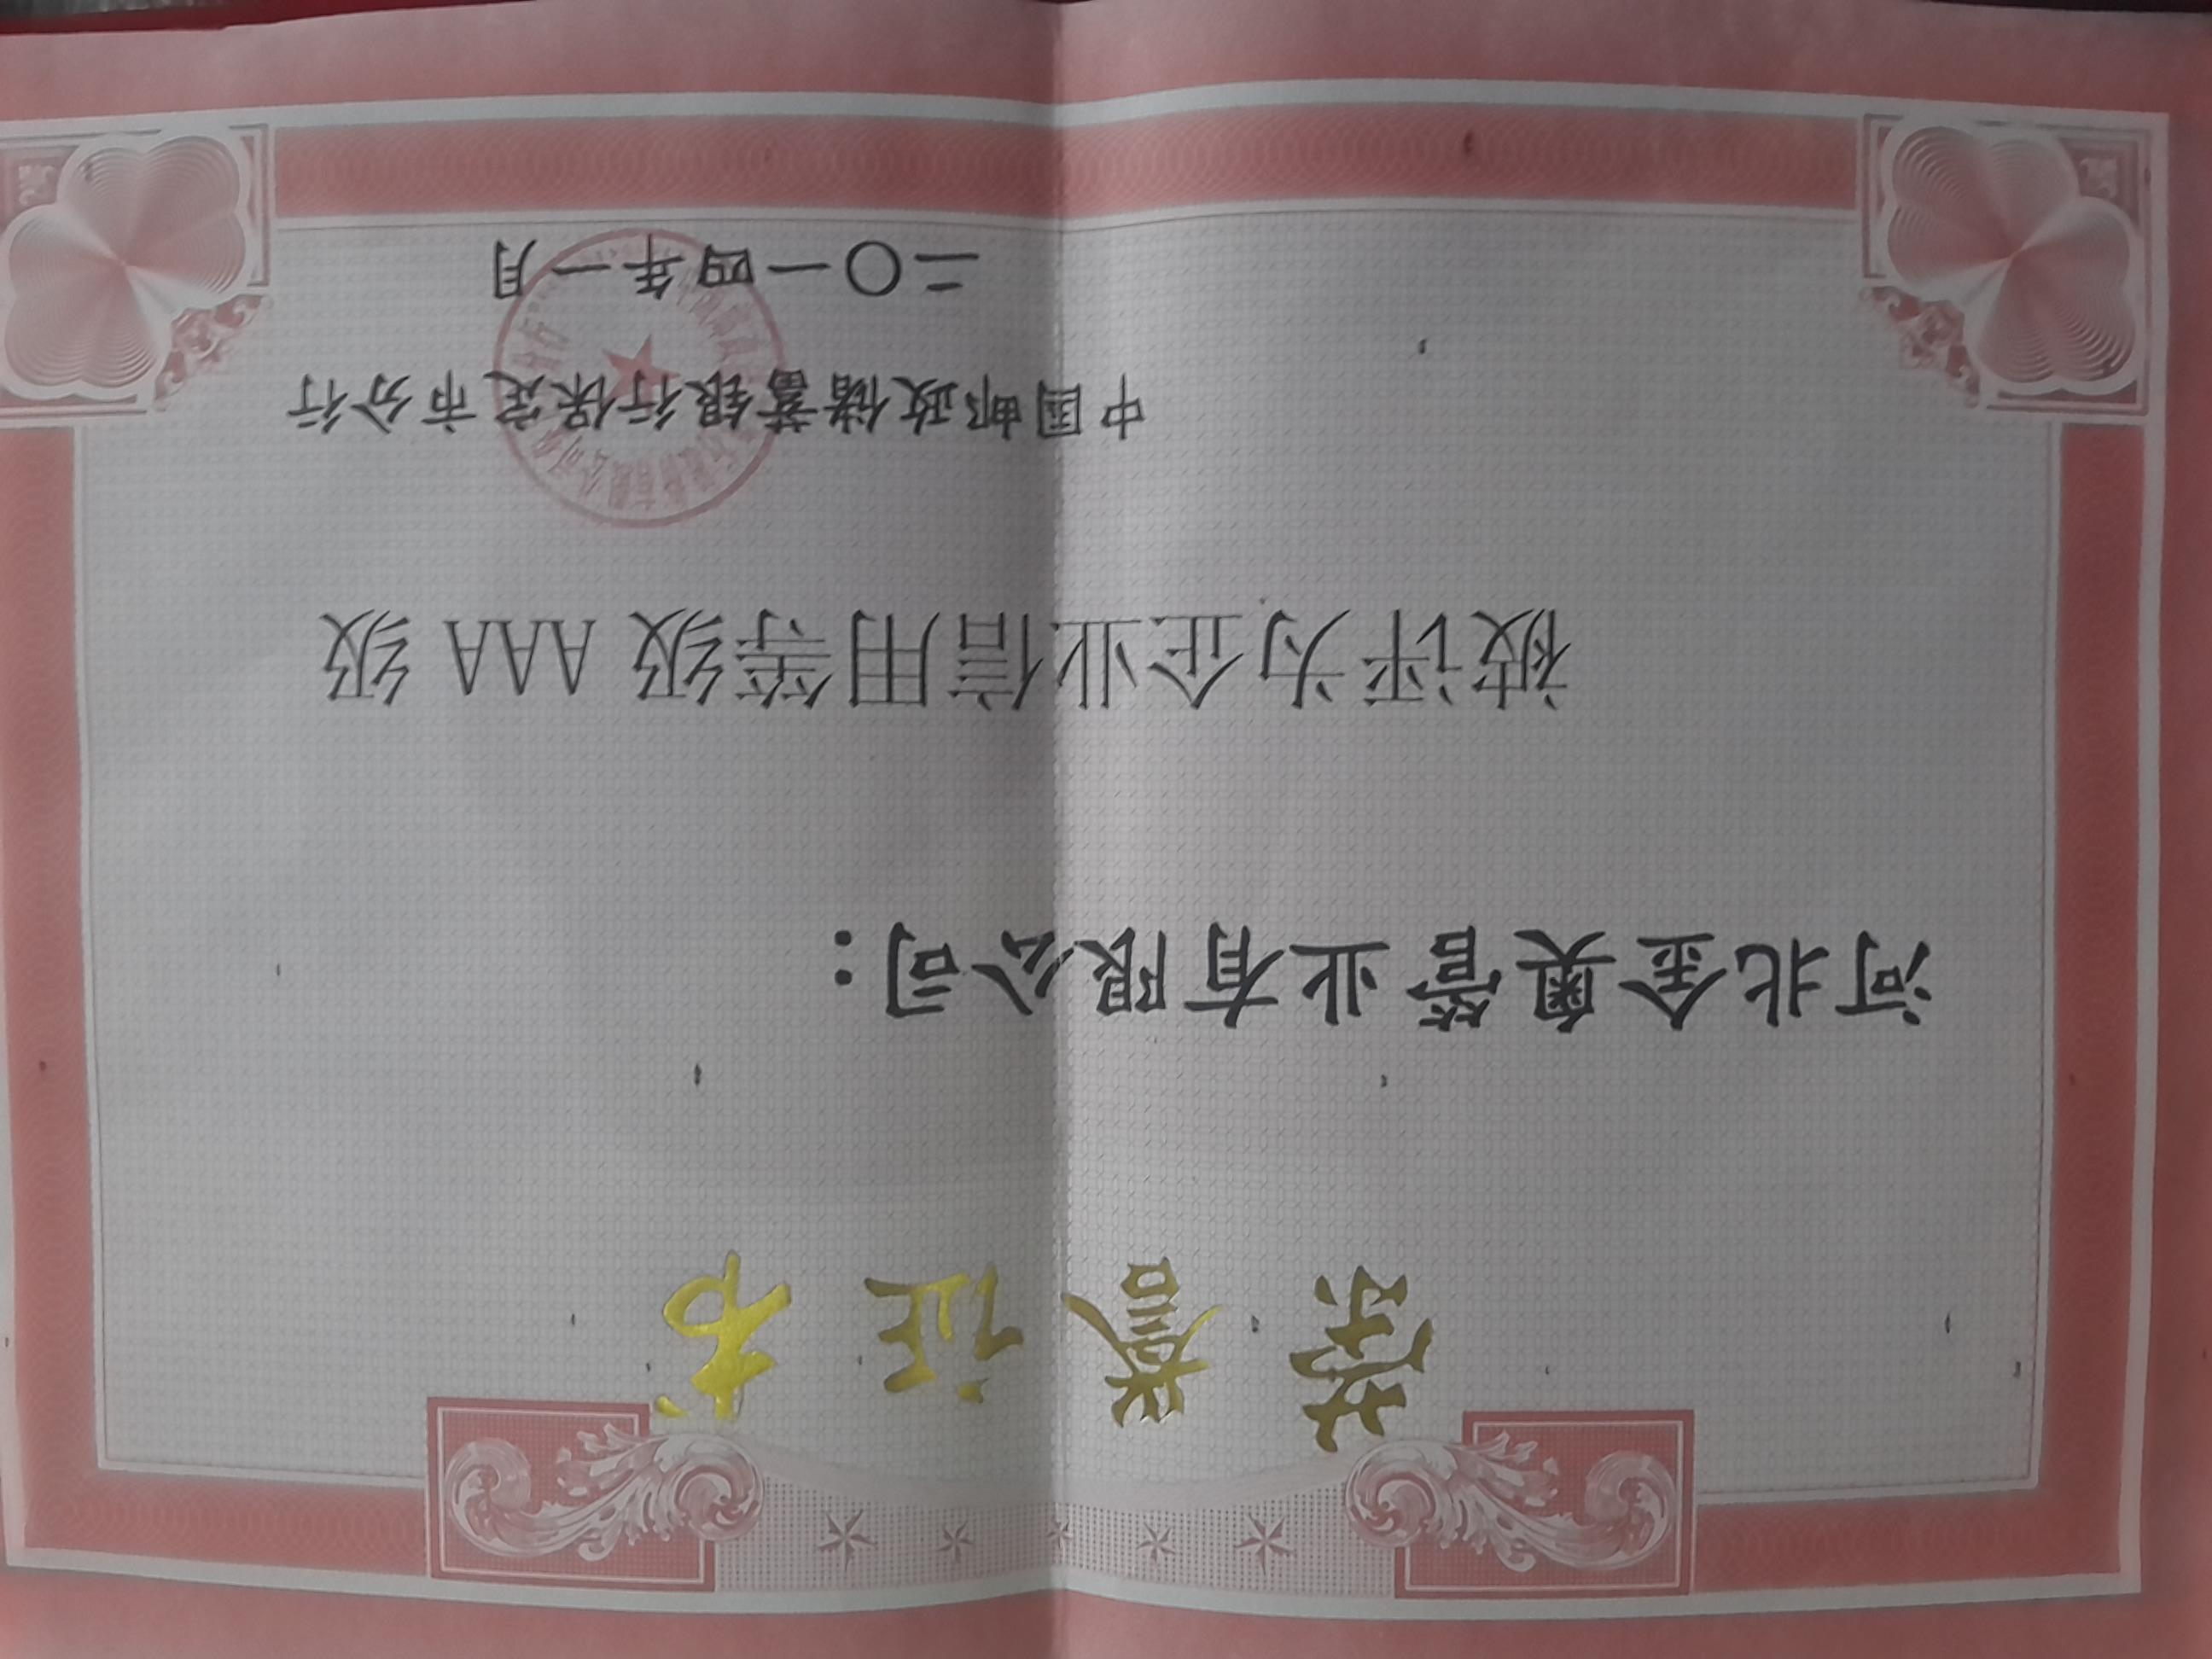 荣誉证书
河北金奥管业有限公司：
被评为企业信用等级 AAA 级
中国邮政储蓄银行保定市分行
二〇一四年一月